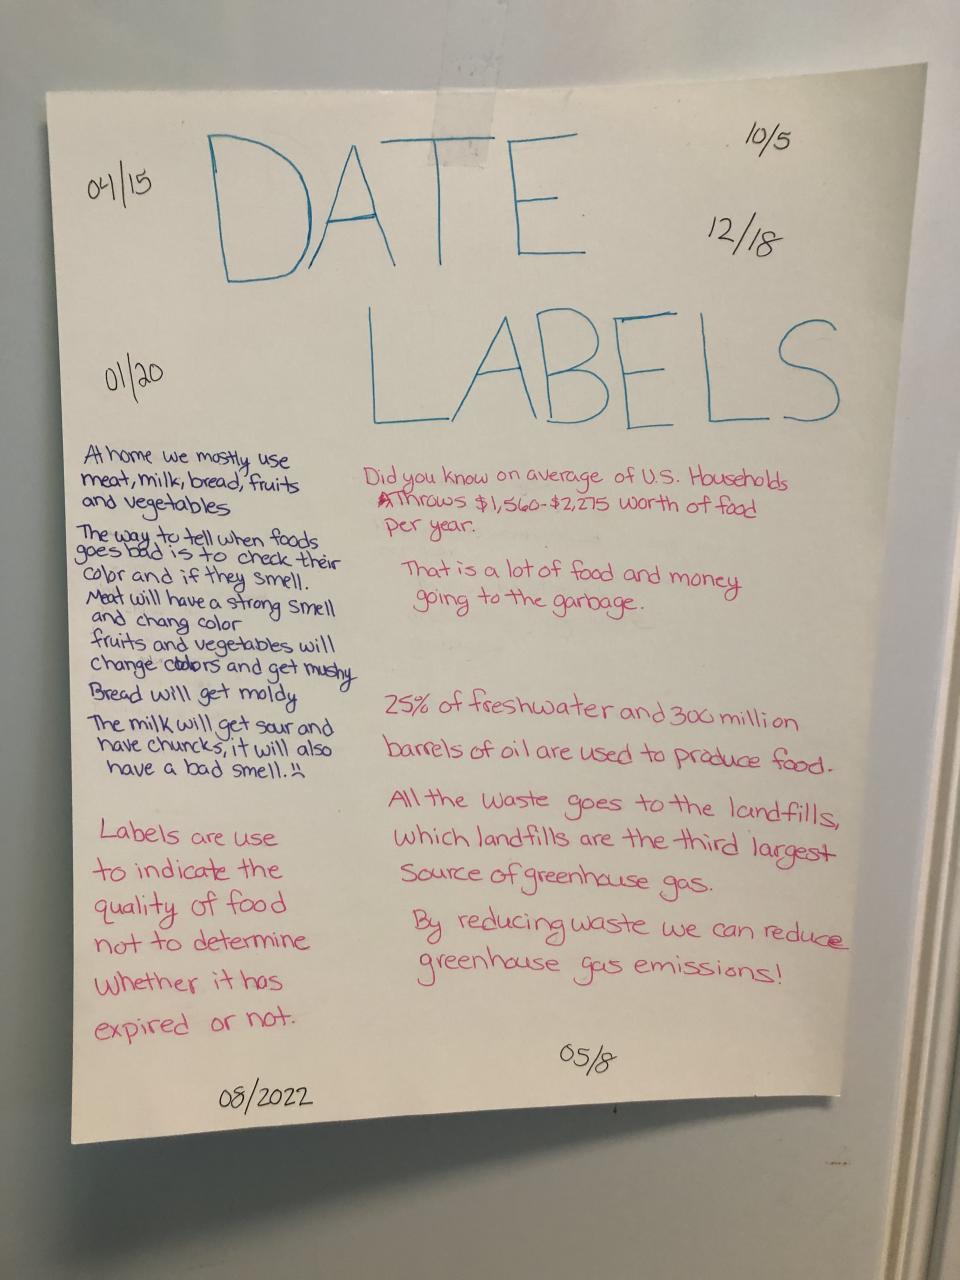 DATE
LABELS
04/15
10/5
12/18
01/20
At home we mostly use
meat, milk, bread, fruits
and vegetables
The way to tell when foods
goes bad is to check their
color and if they smell.
Meat will have a strong smell
and chang color
fruits and vegetables will
change colors and get mushy
Bread will get moldy
The milk will get sour and
have chuncks, it will also
have a bad smell.
Labels are use
to indicate the
quality of food
not to determine
whether it has
expired or not.
08/2022
Did you know on average of U.S. Households
Throws $1,560-$2,275 worth of food
per year.
That is a lot of food and money
going to the garbage.
25% of freshwater and 300 million
barrels of oil are used to produce food.
All the waste goes to the landfills,
which landfills are the third largest
source of greenhouse gas.
By reducing waste we can reduce
greenhouse gas emissions!
05/8